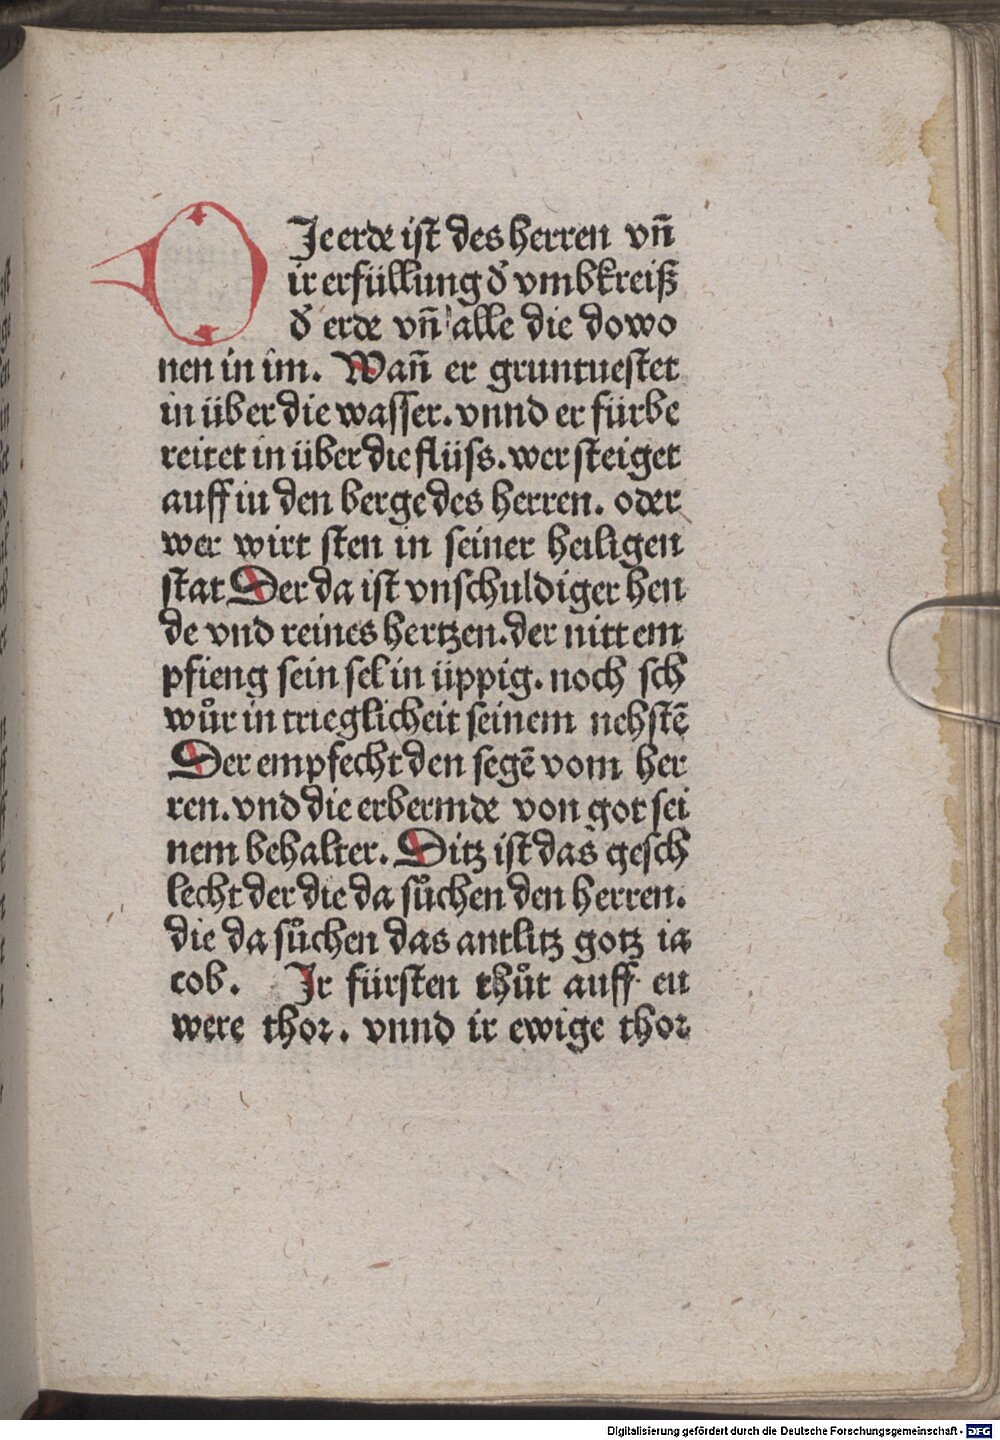 DJe erde ist des herren vñ
ir erfüllung d̕ vmbkreiß
d̕ erde vñ alle die do wo
nen in im. Wañ er gruntuestet
in über die wasser. vnnd er fürbe
reitet in über die flüss. wer steiget
auff in den berge des herren. oder
wer wirt sten in seiner heiligen
stat Der da ist vnschuldiger hen
de vnd reines hertzen. der nitt em
pfieng sein sel in üppig. noch sch
wůr in trieglicheit seinem nehstē
Der empfecht den segē vom her
ren. vnd die erbermde von got sei
nem behalter. Ditz ist das gesch
lecht der die da sůchen den herren.
die da sůchen das antlitz gotz ia
cob. Jr fürsten thůt auff eu
were thor. vnnd ir ewige thor
Digitalisierung gefördert durch die Deutsche Forschungsgemeinschaft - DFG